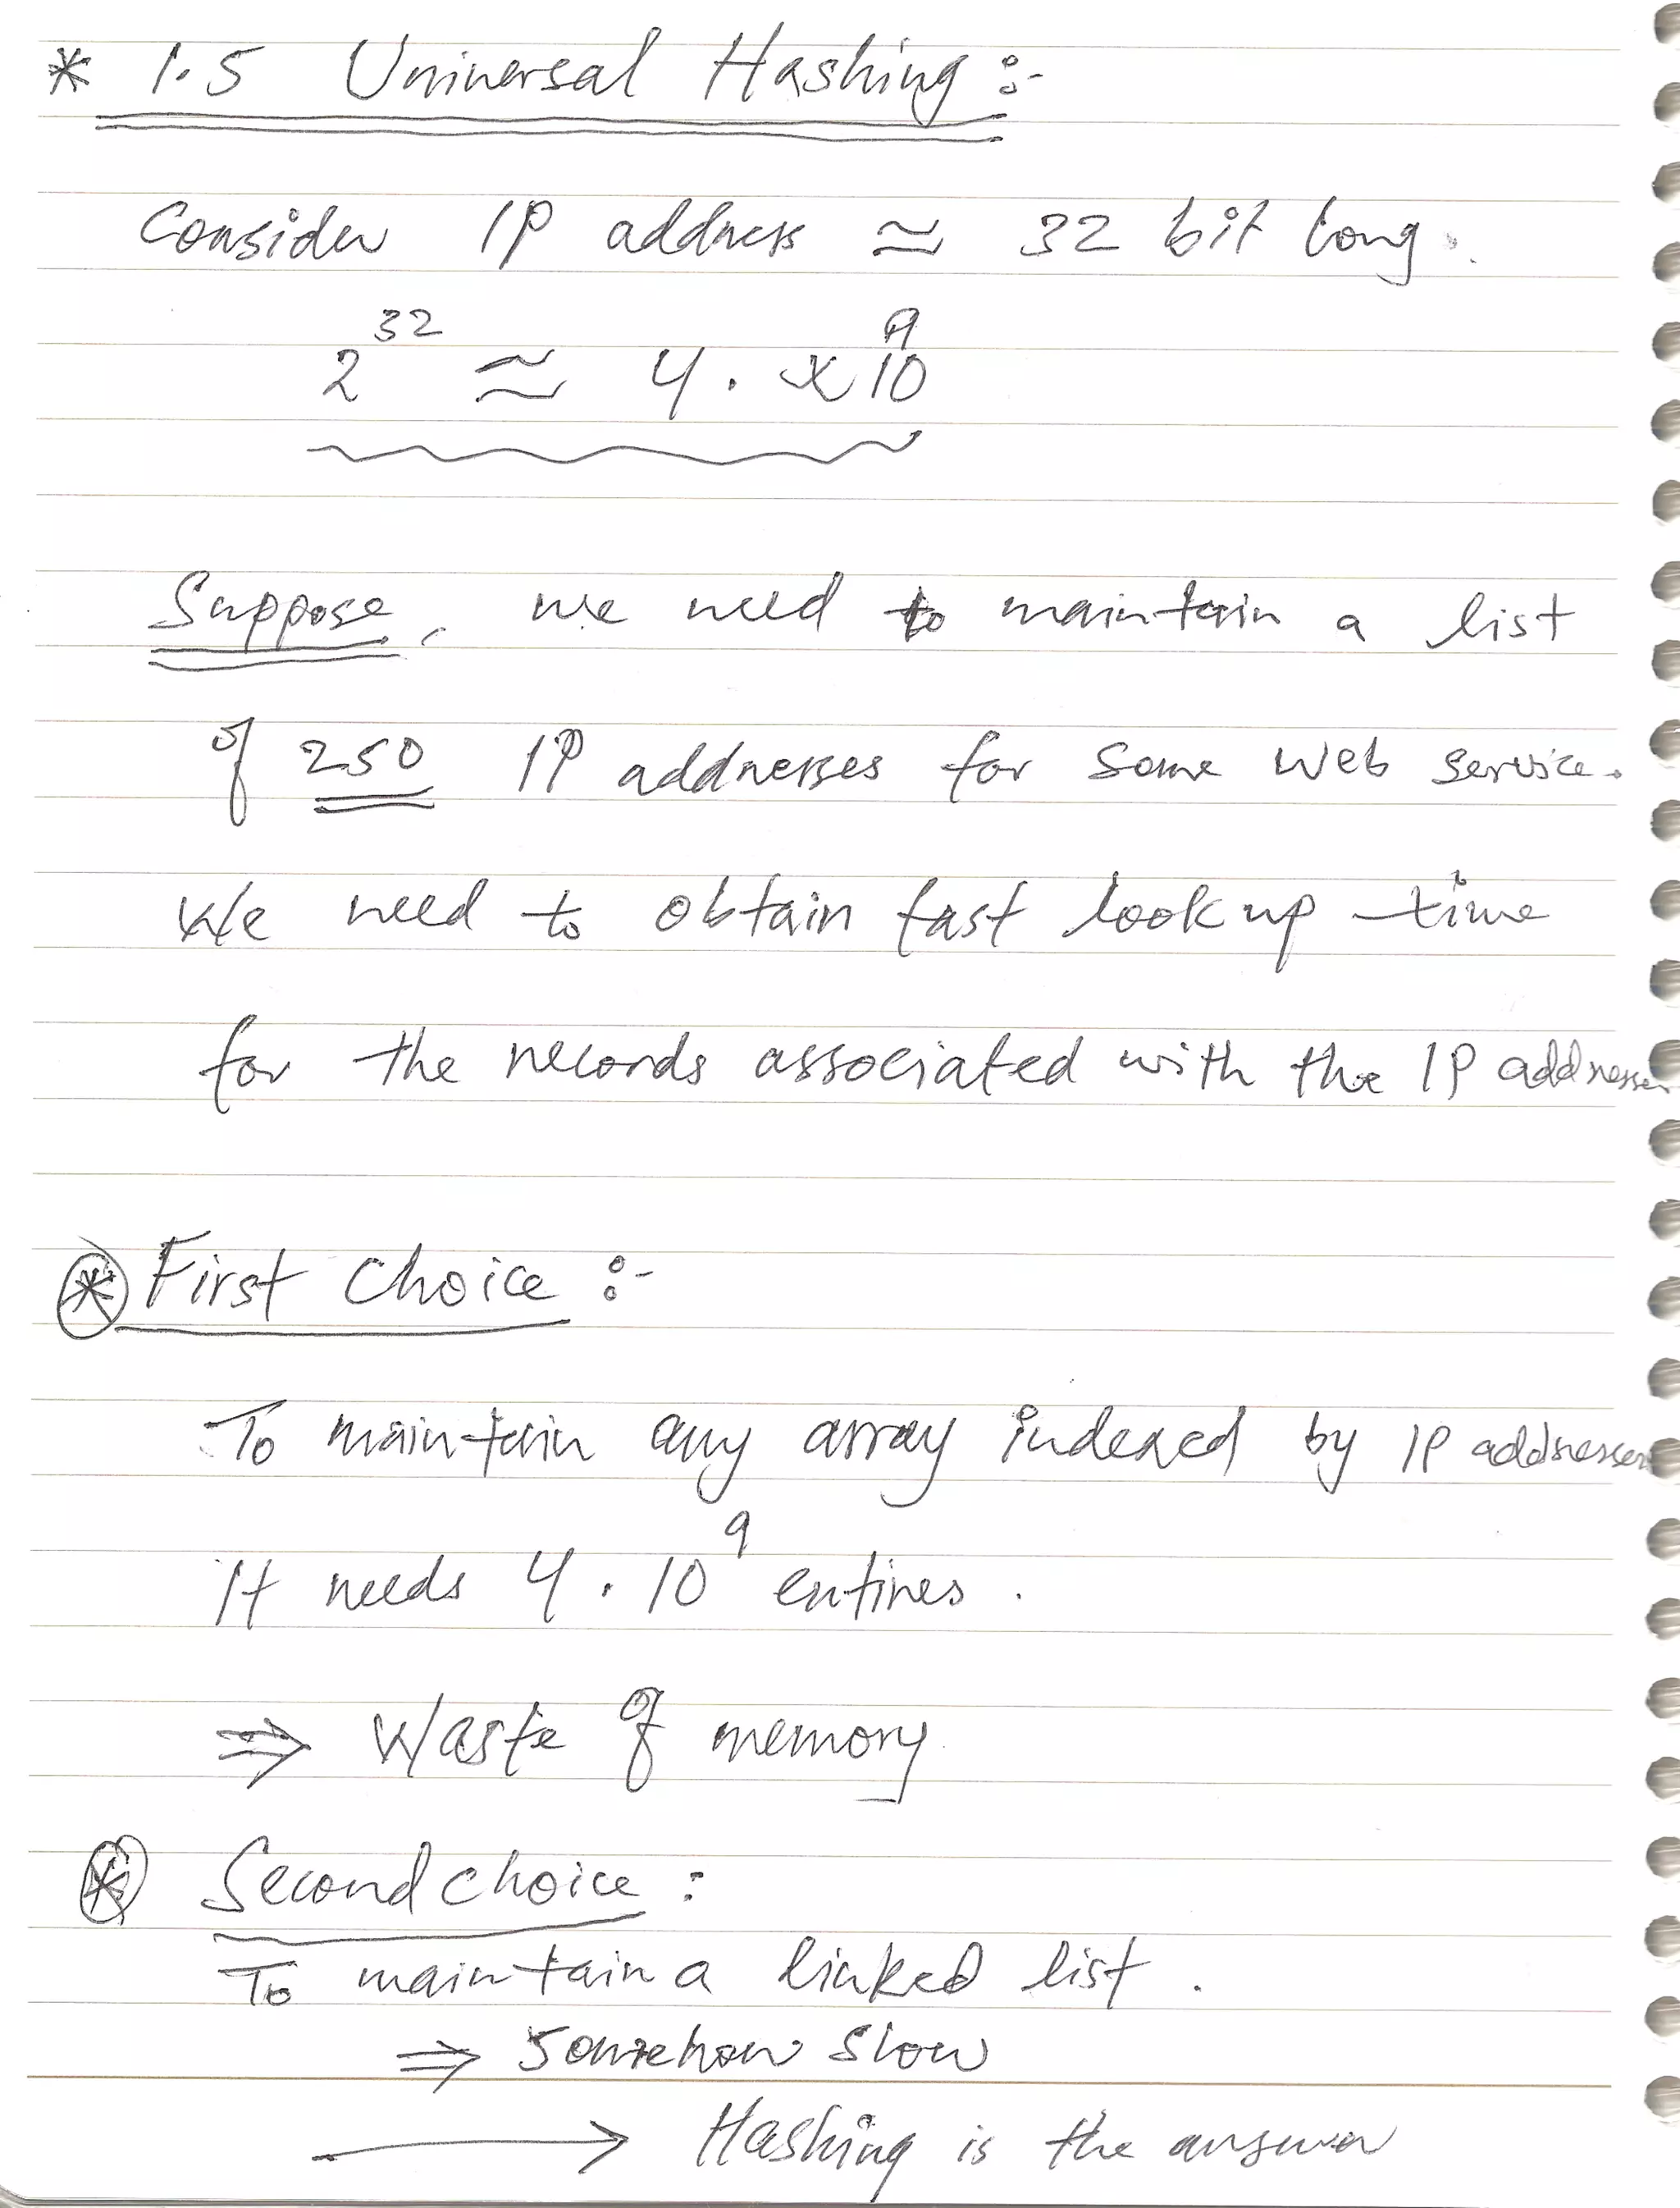 * 1.5 Universal Hashing :-
Consider IP address ≈ 32 bit long.
2^32 ≈ 4. x 10^9
Suppose, we need to maintain a list
of 250 IP addresses for some web service.
We need to obtain fast lookup time
for the records associated with the IP addresses
* First Choice :-
To maintain any array indexed by IP addresses
It needs 4 . 10^9 entires .
⇒ Waste of memory
* Second choice :
To maintain a linked list .
⇒ Somehow slow
→ Hashing is the answer